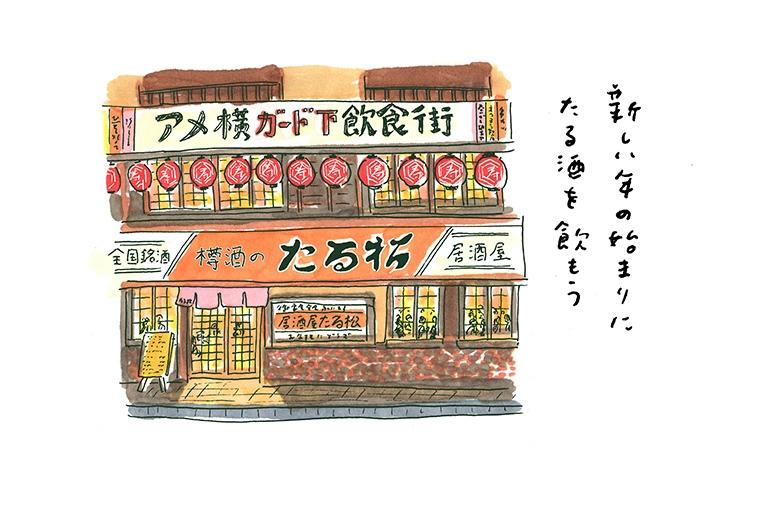 新しい年の始まりに
たる酒を飲もう
アメ横ガード下飲食街
寿 寿 寿 寿 寿 寿 寿 寿 寿 寿 寿
全国銘酒
樽酒の たる松
居酒屋
居酒屋たる松